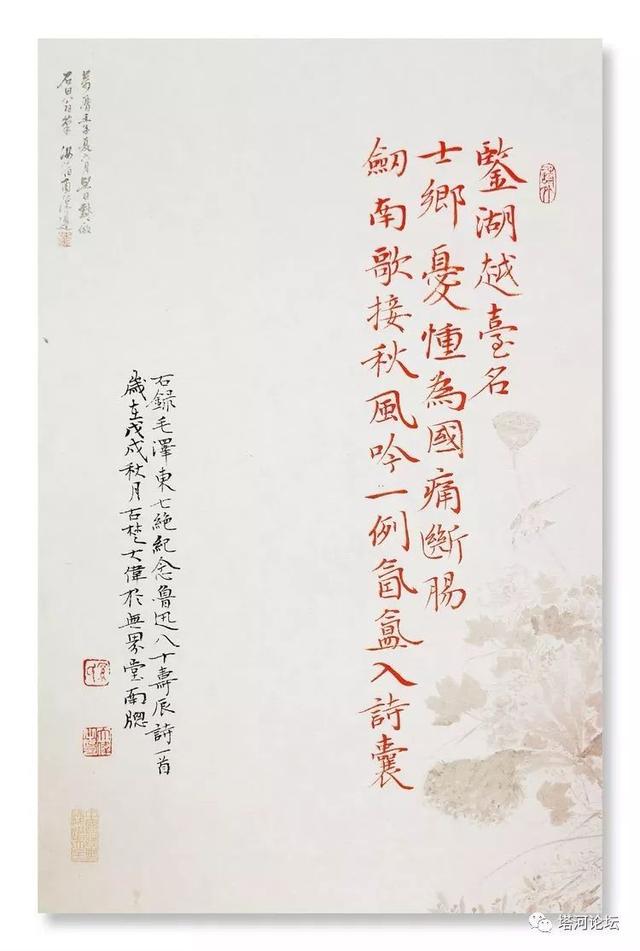 鑒湖越臺名
士鄉憂忡為國痛斷腸
劍南歌接秋風吟一例氤氳入詩囊
右録毛澤東七絶紀念魯迅八十壽辰詩一首
歲在戊戌秋月古楚大偉於無界堂南牕
萬曆壬子夏六月
石田翁筆
塔河论坛